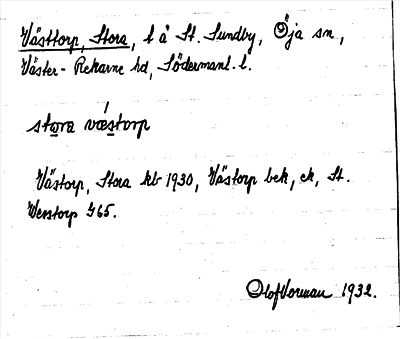 Västtorp, Stora, l å St. Sundby, Öja sn,
Väster-Rekarne hd, Södermanl. l.
stora væstorp
Västorp, Stora kb 1930, Västorp bek, ek, St.
Werstorp G65.
Olof Vorman 1932.